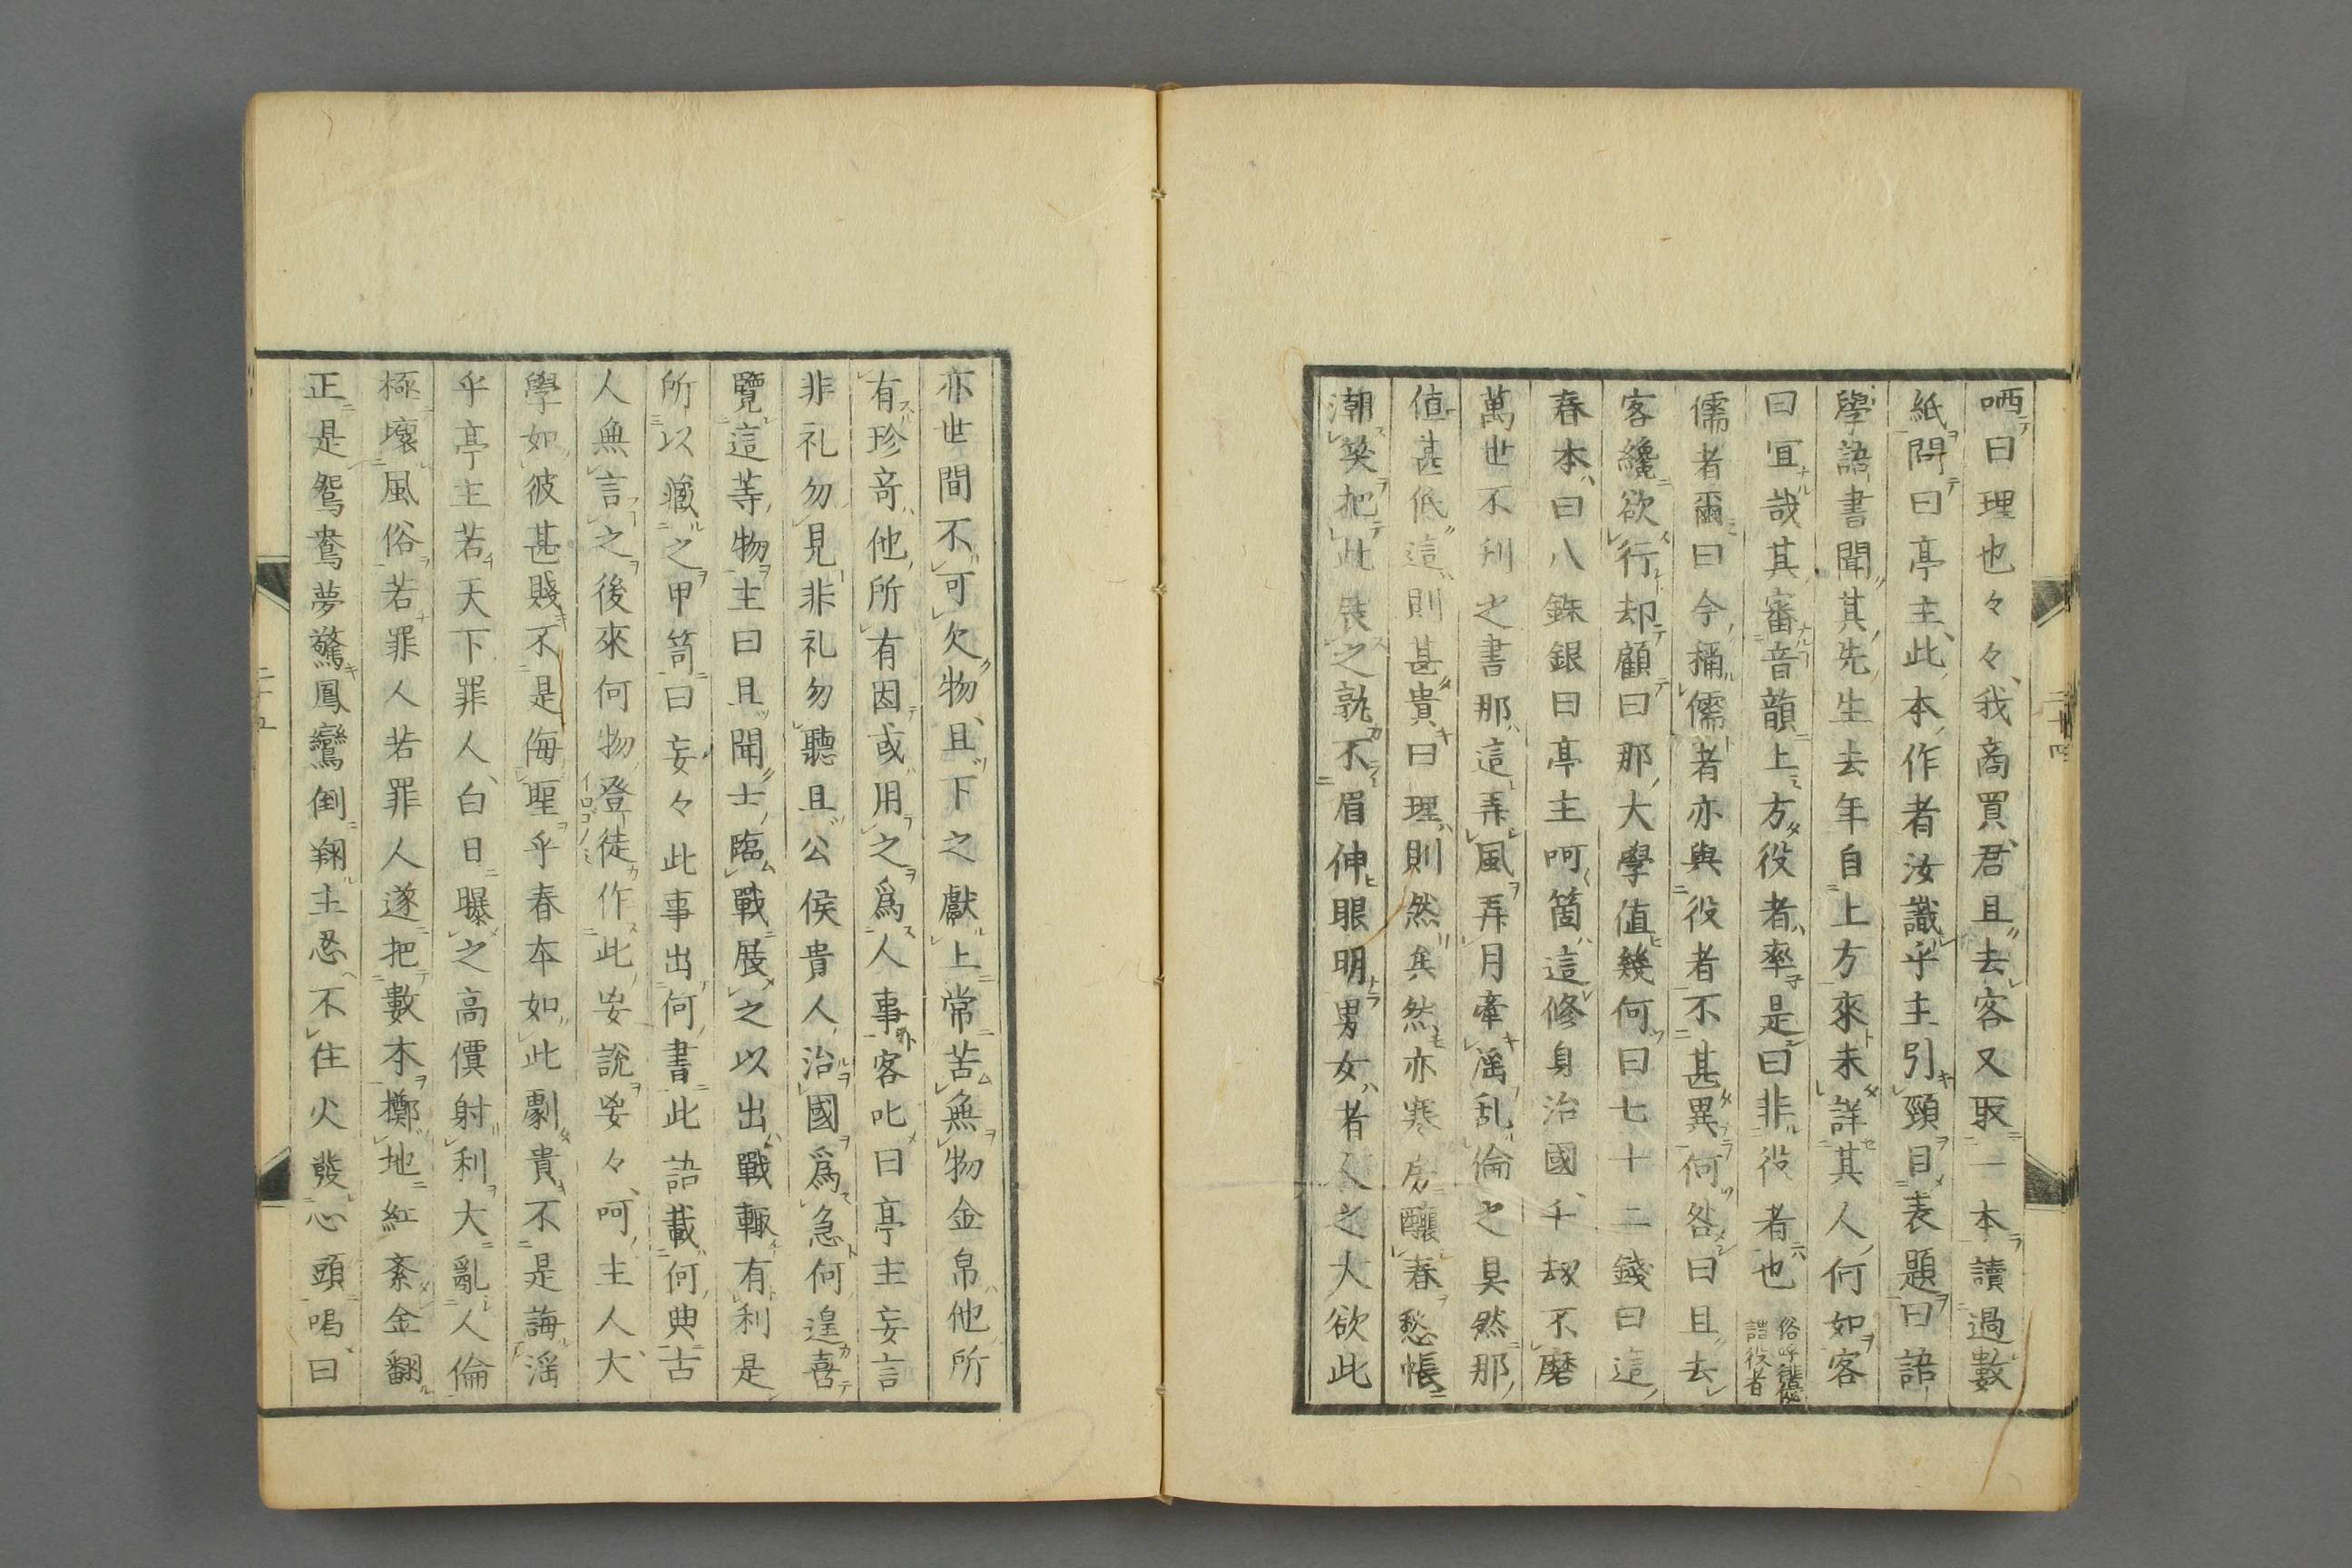 哂曰理也々々我商買君且去客又取一本讀過數
紙問曰亭主此本作者汝識乎主引頸目表題曰語
學語書聞其先生去年自上方來未詳其人何如客
曰冝哉其審音韻上方役者率是曰非役者也
俗呼
謂役者
儒者爾曰今稱儒者亦與役者不甚異何咎曰且去
客纔欲行却顧曰那大學値幾何曰七十二錢曰這
春本曰八銖銀曰亭主呵箇這修身治國千劫不磨
萬世不刊之書那這弄風弄月牽滛乱倫之具然那
値甚低這則甚貴曰理則然矣然亦寒房釀春愁帳
潮笑把此裝之孰不眉伸眼明男女者人之大欲此
二十四
亦世間不可欠物且下之獻上常苦無物金帛他所
有珍竒他所有因或用之爲人事客叱曰亭主妄言
非礼勿見非礼勿聽且公侯貴人治國爲急何遑喜
覽這等物主曰且聞士臨戰展之以出戰輙有利是
所以藏之甲笥曰妄々此事出何書此語載何典古
人無言之後來何物登徒作此妄說妄々呵主人大
イロゴノミ
學如彼甚賤不是侮聖乎春本如此劇貴不是誨滛
乎亭主若天下罪人白日曝之高價射利大亂人倫
極壞風俗若罪人若罪人遂把數本擲地紅紊金翻
正是鴛鴦夢驚鳳鸞倒翔主忍不住火發心頭喝曰
二十五